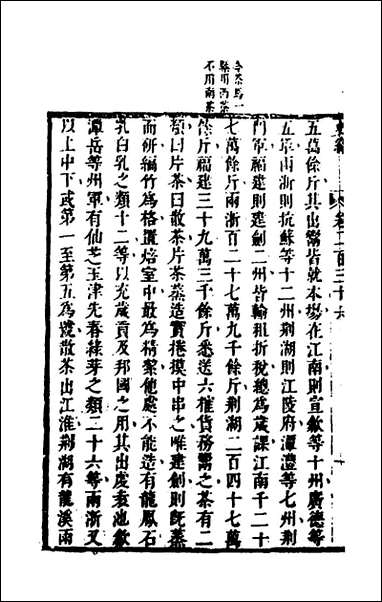 令茶馬一
縣用西茶
不用南茶
五萬餘斤其出鬻皆就本場在江南則宣歙等十州廣德等
五軍兩浙則杭蘇等十二州荆湖則江陵府潭澧等七州荆
門軍福建則建劍二州皆輸租折稅總為歲課江南千二十
七萬餘斤兩浙百二十七萬九千餘斤荆湖二百四十七萬
餘斤福建三十九萬三千餘斤悉送六榷貨務鬻之茶有二
類曰片茶曰散茶片茶蒸造實捲摸中串之唯建劍則既蒸
而研編竹為格置焙室中最為精潔他處不能造有龍鳳石
乳白乳之類十二等以充歲貢及邦國之用其出虔袁池歙
潭岳等州軍有仙芝玉津先春綠芽之類二十六等兩浙又
以上中下或第一至第五為號散茶出江淮荆湖有龍溪雨